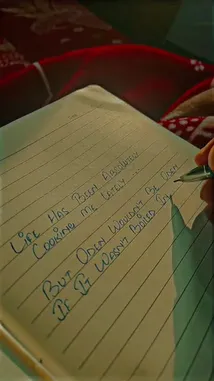 LIFE HAS BEEN
COOKING ME LATELY
BUT ODEN WOULDN'T BE
IF IT WASN'T BOILED